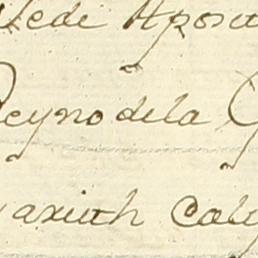 Sede Aposto
Reyno dela G
axuch Caly